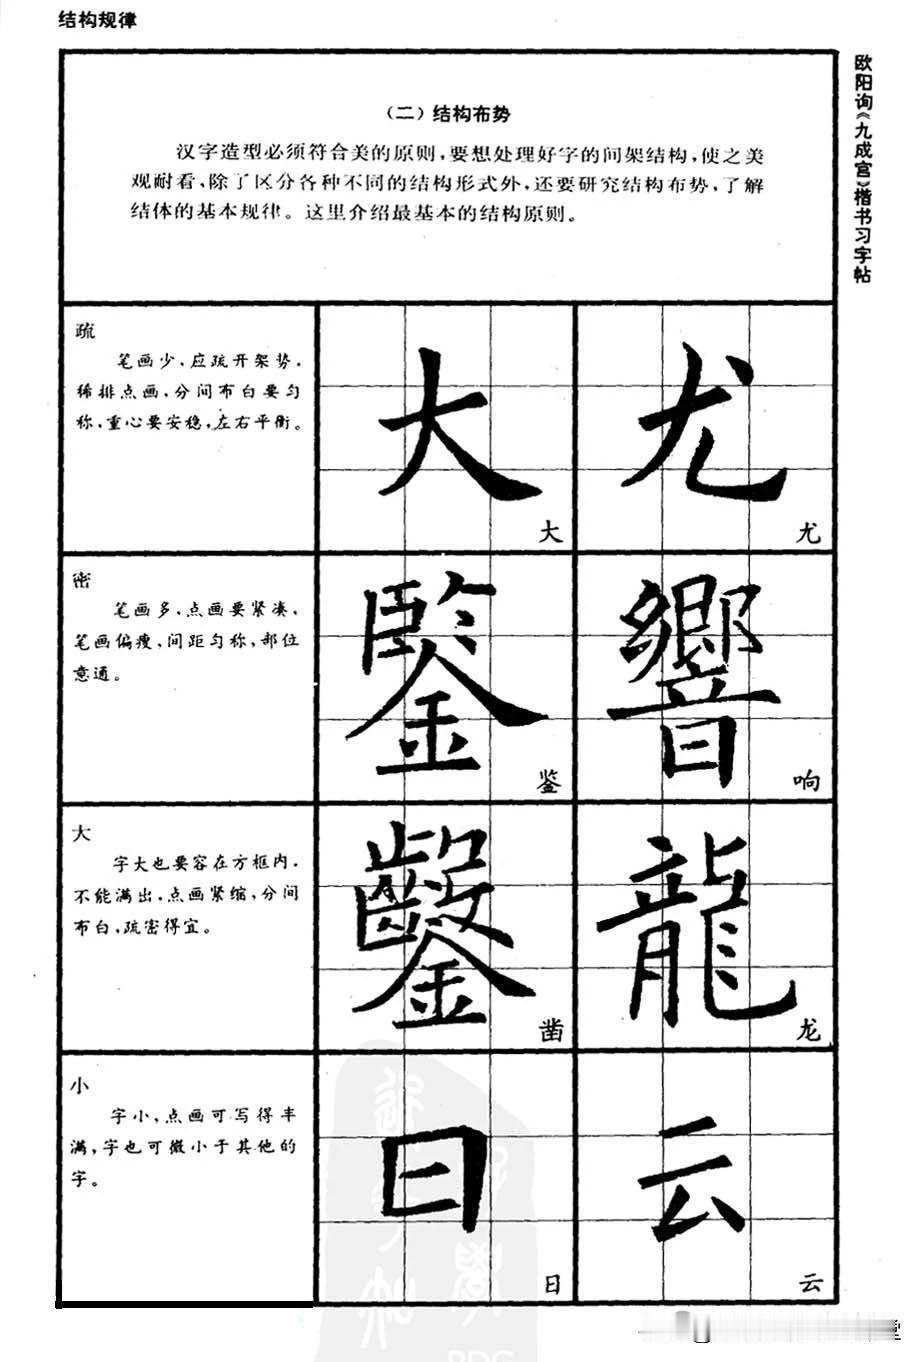 结构规律
欧阳询《九成宫》楷书习字帖
（二）结构布势
汉字造型必须符合美的原则，要想处理好字的间架结构，使之美
观耐看，除了区分各种不同的结构形式外，还要研究结构布势，了解
结体的基本规律。这里介绍最基本的结构原则。
疏
笔画少，应疏开架势，
稀排点画，分间布白要匀
称，重心要安稳，左右平衡。
大
尤
大
尤
密
笔画多，点画要紧凑，
笔画偏瘦，间距匀称，部位
意通。
鑒
響
鉴
响
大
字大也要容在方框内，
不能满出，点画紧缩，分间
布白，疏密得宜。
鑿
龍
凿
龙
小
字小，点画可写得丰
满，字也可微小于其他的
字。
日
云
日
云